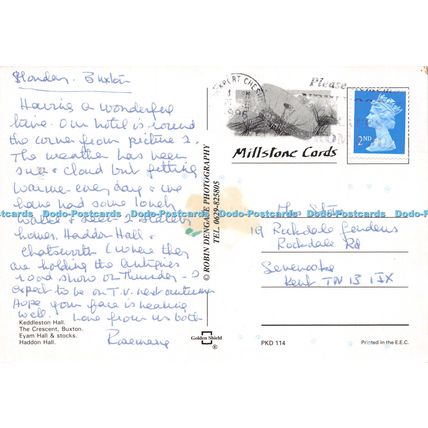 Monday. Buxton
Having a wonderful
time. Our hotel is round
the corner from picture 2.
The weather has been
sun & cloud but getting
warmer every day & we
have had some lovely
walks & seen 2 stately
homes Haddon Hall &
Chatsworth (where they
are holding the antiques
road show on Thursday - to
expect to be on T.V. next autumn
Hope your face is healing
well. Love from us both
Rosemary
Keddleston Hall.
The Crescent, Buxton.
Eyam Hall & stocks.
Haddon Hall.
© ROBIN DENGATE PHOTOGRAPHY
TEL. 0629-825805
Golden Shield
®
Please
1995
Millstone Cards
2ND
19 Rockdale Gardens
Rockdale Rd
Sevenoaks
Kent TN13 1JX
PKD 114
Printed in the E.E.C.
Dodo-Postcards Dodo-Postcards Dodo-Postcards Dodo-Postcards Dodo-Postcards